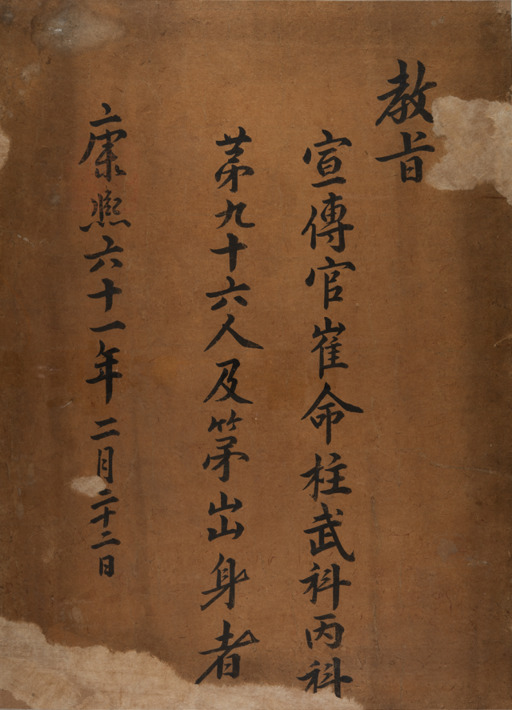 教旨
宣傳官崔命柱武科丙科
第九十六人及第出身者
康熙六十一年二月二十二日